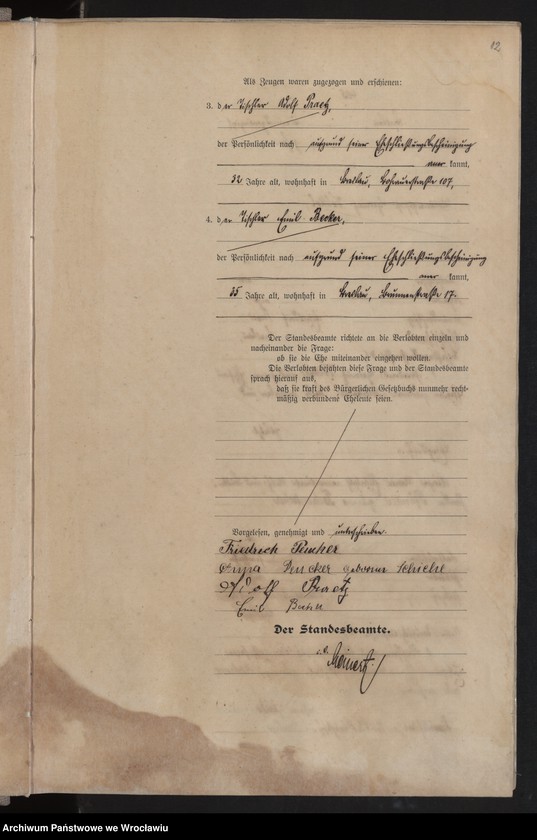 12
Als Zeugen waren zugezogen und erschienen:
3. der Tischler Adolf Praetz,
der Persönlichkeit nach aufgrund seiner Eheschließungsbescheinigung
aner kannt,
32 Jahre alt, wohnhaft in Breslau, Bohrauerstraße 107,
4. der Tischler Emil Becker,
der Persönlichkeit nach aufgrund seiner Eheschließungsbescheinigung
aner kannt,
35 Jahre alt, wohnhaft in Breslau, Brunnenstraße 17.
Der Standesbeamte richtete an die Verlobten einzeln und
nacheinander die Frage:
ob sie die Ehe miteinander eingehen wollen.
Die Verlobten bejahten diese Frage und der Standesbeamte
sprach hierauf aus,
daß sie kraft des Bürgerlichen Gesetzbuchs nunmehr recht-
mäßig verbundene Eheleute seien.
Vorgelesen, genehmigt und unterschrieben
Friedrich
geborene
Adolf Praetz
Emil
Der Standesbeamte.
Archiwum Państwowe we Wrocławiu